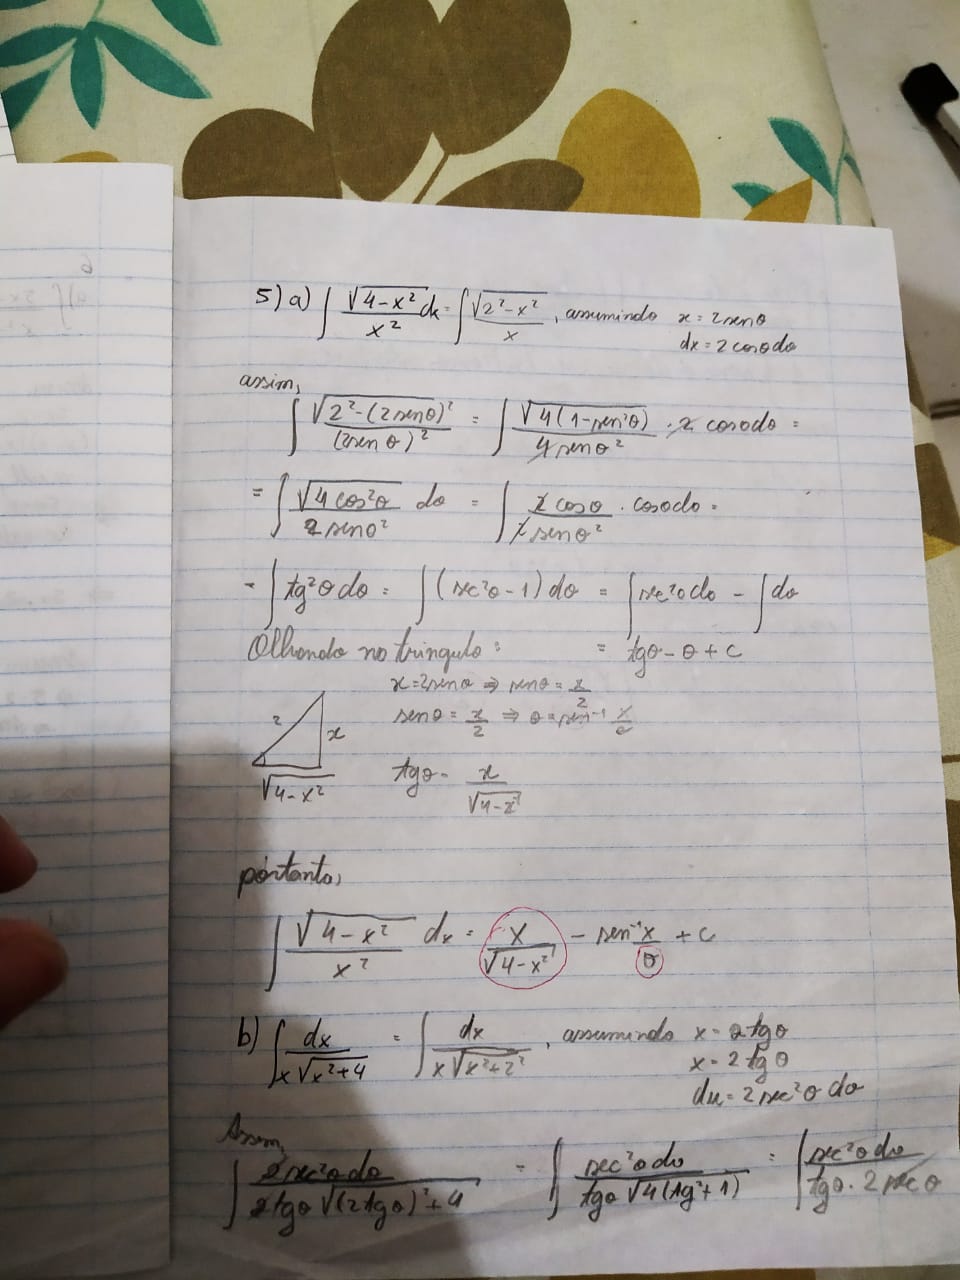 5) a) ∫ √(4-x²)/x² dx = ∫ √(2²-x²)/x , assumindo x = 2senθ
dx = 2cosθdθ
assim,
∫ √(2²-(2senθ)²)/(2senθ)² = ∫ √(4(1-sen²θ))/4senθ² · 2 cosθdθ =
= ∫ √(4cos²θ)/2senθ² dθ = ∫ 2cosθ/2senθ² · cosθdθ =
- ∫ tg²θdθ = ∫ (sec²θ-1)dθ = ∫ sec²θdθ - ∫ dθ
Olhando no tringulo: = tgθ-θ+c
x=2senθ ⇒ senθ = x/2
senθ = x/2 ⇒ θ = sen⁻¹
2 x
√(4-x²)
tgθ = x/
portanto,
∫ √(4-x²)/x² dx = x/√(4-x²) - sen⁻¹x/θ + c
b) ∫ dx/x√(x²+4) = ∫ dx/x√(x²+2²) , assumindo x = 2tgθ
x = 2tgθ
dx = 2sec²θdθ
Assim,
∫ 2sec²θdθ/2tgθ√((2tgθ)²+4) = ∫ sec²θdθ/tgθ√(4(tg²+1)) = ∫ sec²θdθ/tgθ·2secθ